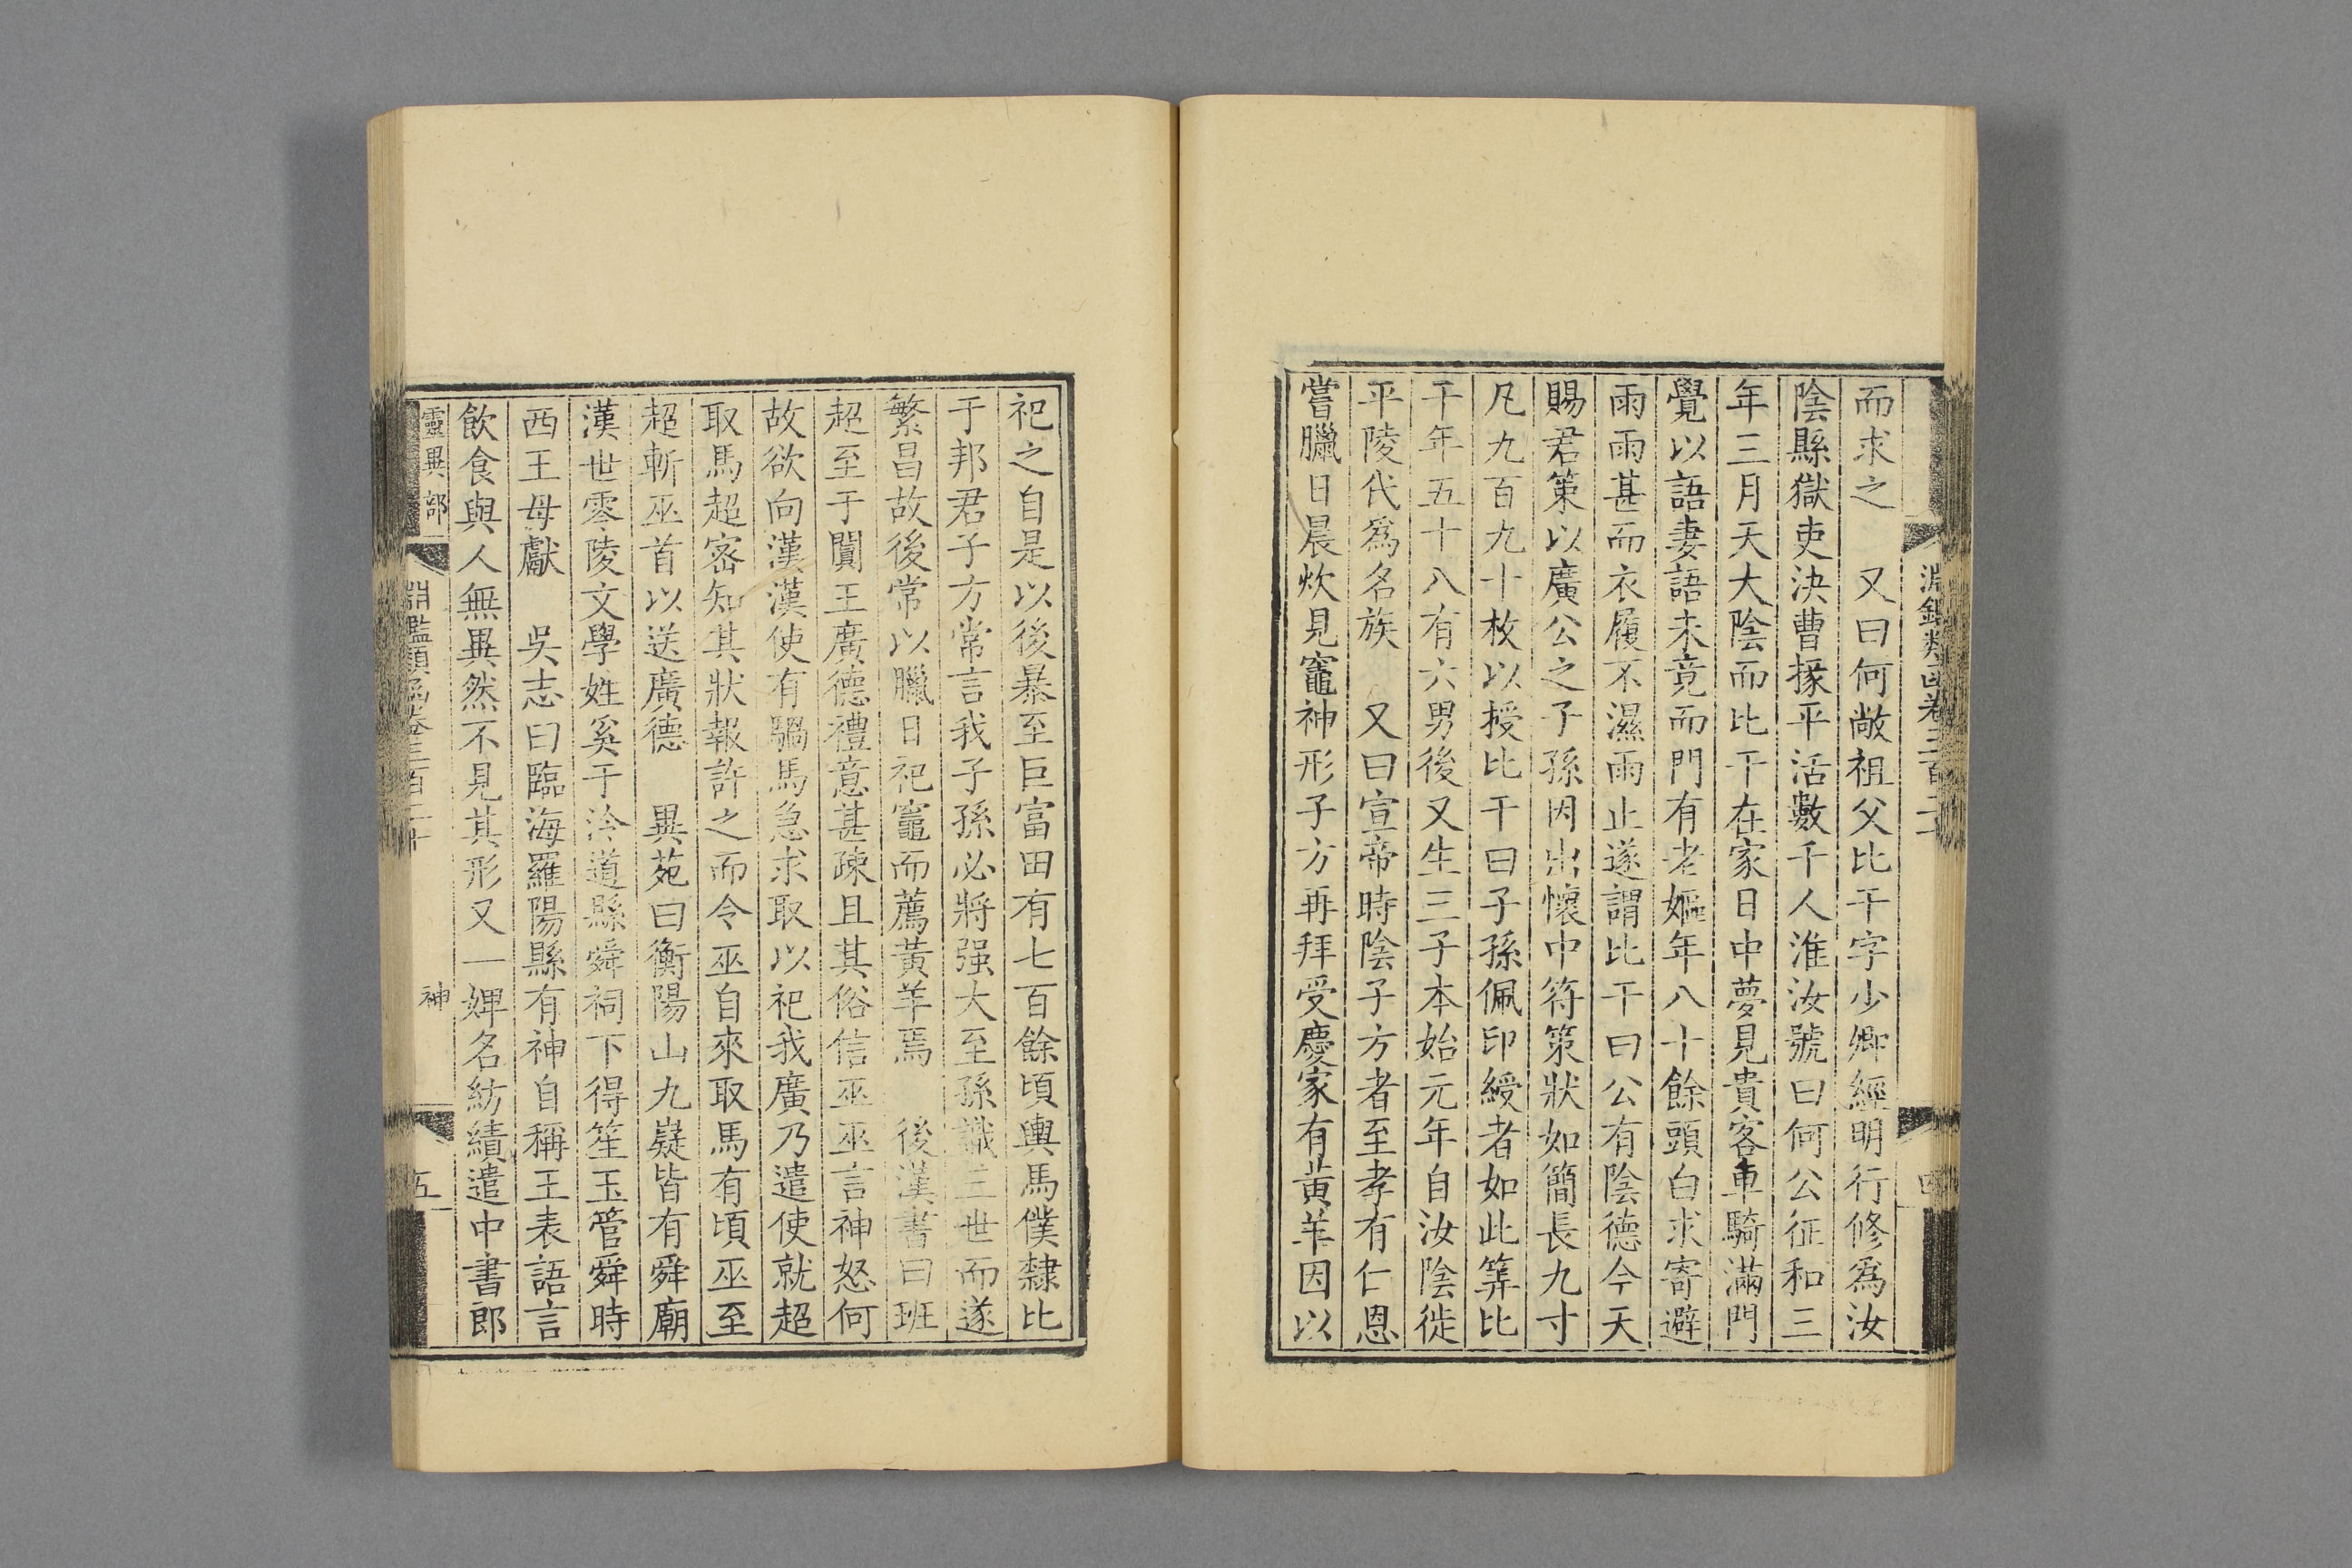 淵鑑類函卷三百二十
四
而求之 又曰何敞祖父比干字少卿經明行修爲汝
陰縣獄吏決曹掾平活數千人淮汝號曰何公征和三
年三月天大陰而比干在家日中夢見貴客車騎滿門
覺以語妻語未竟而門有老嫗年八十餘頭白求寄避
雨雨甚而衣履不濕雨止遂謂比干曰公有陰德今天
賜君策以廣公之子孫因出懷中符策狀如簡長九寸
凡九百九十枚以授比干曰子孫佩印綬者如此筭比
干年五十八有六男後又生三子本始元年自汝陰徙
平陵代爲名族 又曰宣帝時陰子方者至孝有仁恩
嘗臘日晨炊見竈神形子方再拜受慶家有黃羊因以
祀之自是以後暴至巨富田有七百餘頃輿馬僕隸比
于邦君子方常言我子孫必將强大至孫識三世而遂
繁昌故後常以臘日祀竈而薦黃羊焉 後漢書曰班
超至于闐王廣德禮意甚疎且其俗信巫巫言神怒何
故欲向漢漢使有騧馬急求取以祀我廣乃遣使就超
取馬超密知其狀報許之而令巫自來取馬有頃巫至
超斬巫首以送廣德 異苑曰衡陽山九嶷皆有舜廟
漢世零陵文學姓奚于泠道縣舜祠下得笙玉管舜時
西王母獻 吳志曰臨海羅陽縣有神自稱王表語言
飲食與人無異然不見其形又一婢名紡績遣中書郎
靈異部
淵鑑類函卷三百二十
神
五